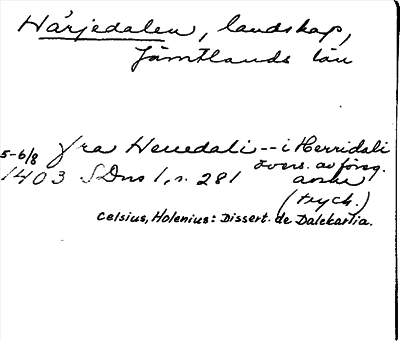 Härjedalen, landskap,
Jämtlands län
fra Herredali -- i Herridali
5-6/8 övers. av försg.
1403 SDns 1, s. 281 avskr
(tryck.)
Celsius, Holenius: Dissert. de Dalekarlia.